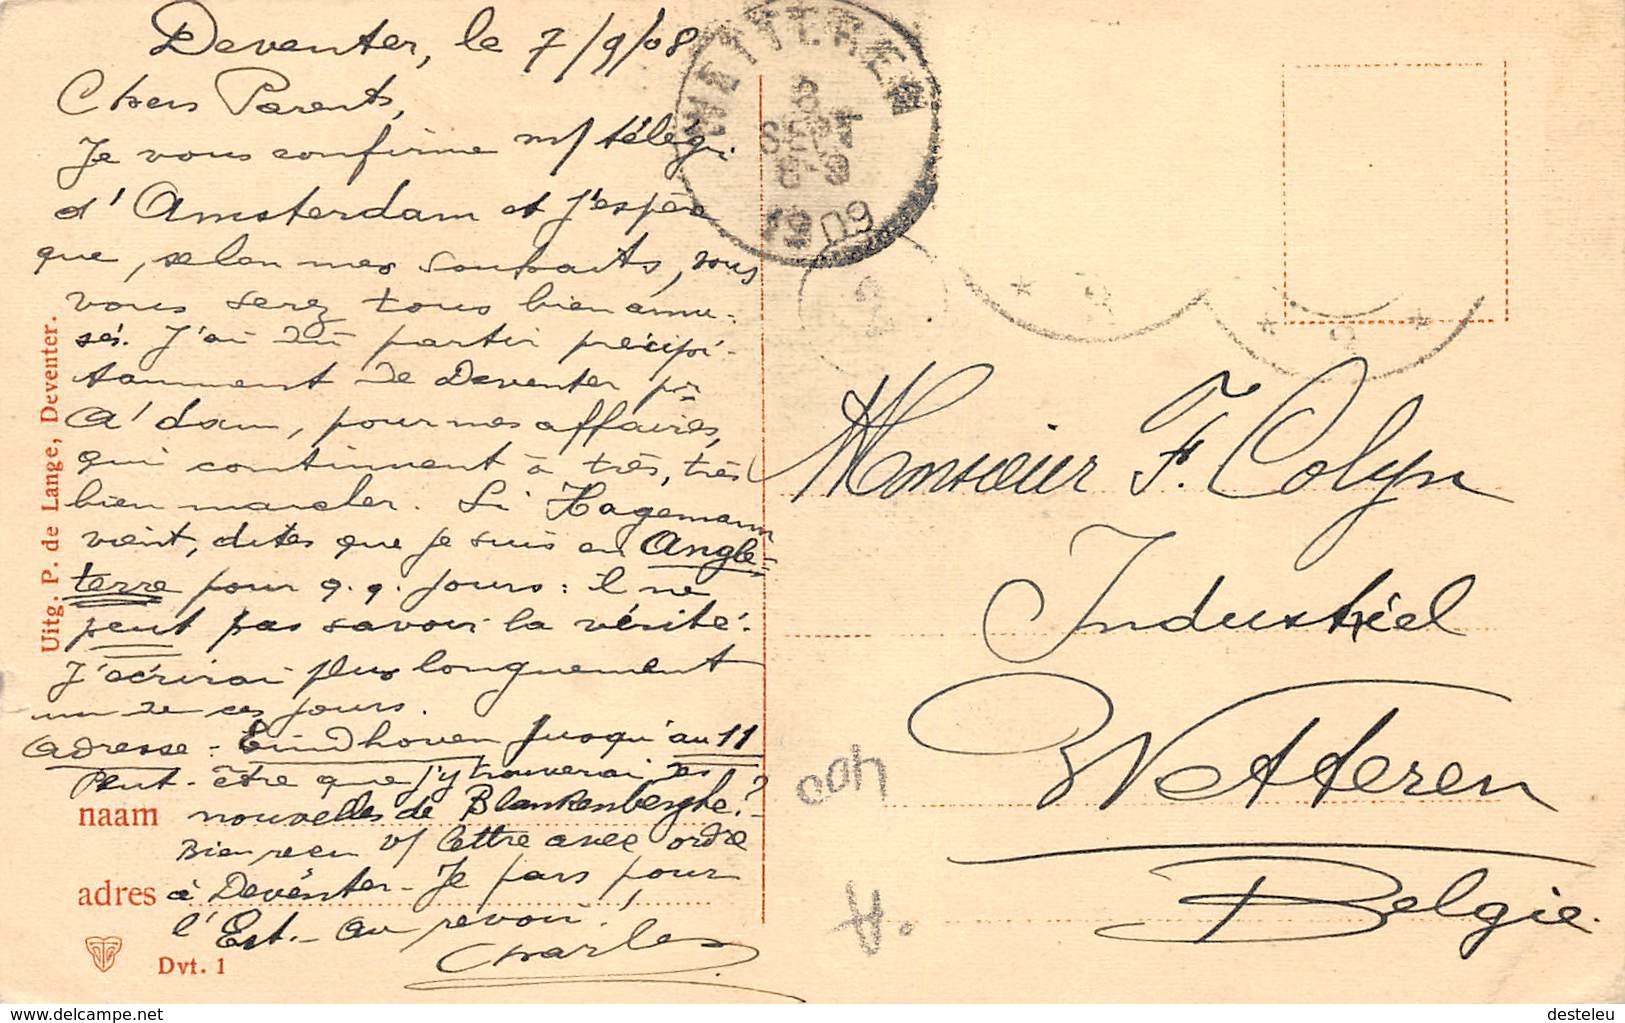 Deventer, le 7/9/08
Chers Parents,
Je vous confirme m/ télégr.
d'Amsterdam et j'espère
que, selon mes souhaits, vous
vous serez tous bien amu-
sés. J'ai dû partir précipi-
tamment de Deventer pr
A'dam, pour mes affaires,
qui continuent à très, très
bien marcher. Si Hagemann
vient, dites que je suis en Angle=
terre pour q.q. jours: il ne
peut pas savoir la vérité.
J'écrirai plus longuement
un de ces jours.
Adresse - Eindhoven jusqu'au 11
Peut-être que j'y trouverai des
naam nouvelles de Blankenberghe?-
Bien reçu v/ lettre avec ordre
adres à Deventer - Je pars pour
l'Est.- Au revoir!
Charles
Dvt. 1
Uitg. P. de Lange, Deventer.
WETTEREN
8
SEPT
8-9
1909
Monsieur F. Colyn
Industriel
Wetteren
Belgie.
400
A.
delcampe.net
desteleu